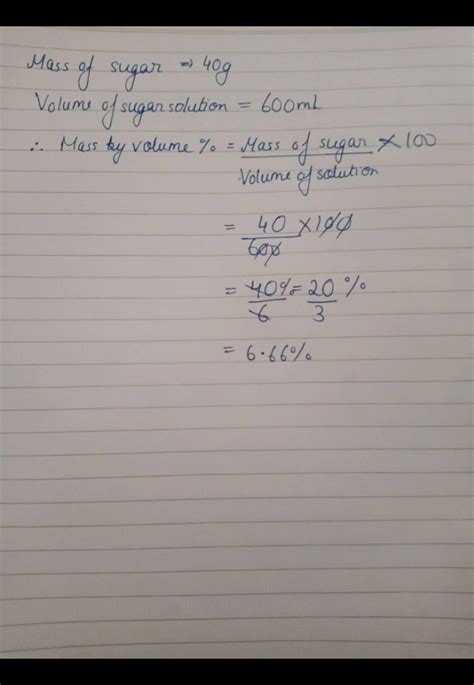 Mass of sugar ⇒ 40g
Volume of sugar solution = 600mL
∴ Mass by volume % = Mass of sugar × 100
Volume of solution
= 40 × 100
600
= 40% = 20 %
6 3
= 6.66%